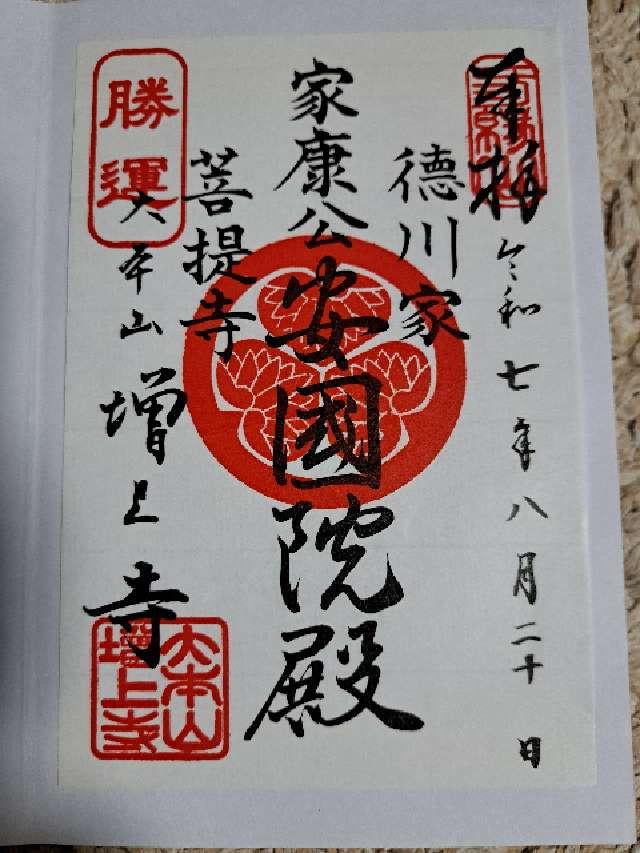 奉拝
令和七年八月二十日
徳川家
家康公安國院殿
菩提寺
勝運
大本山増上寺
大本山
増上寺